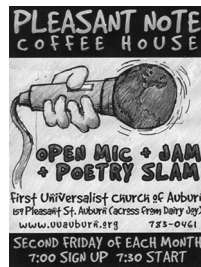 PLEASANT NOTE
COFFEE HOUSE
OPEN MIC + JAM
+ POETRY SLAM
First Universalist Church of Auburn
169 Pleasant St. Auburn (across from Dairy Joy)
www.uuauburn.org 783-0461
SECOND FRIDAY OF EACH MONTH
7:00 SIGN UP 7:30 START